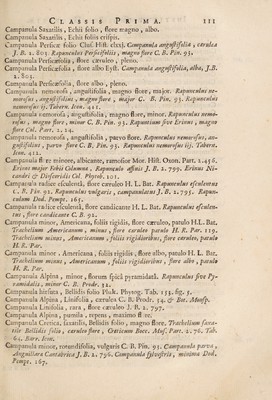 Classis Prima. 111
Campanula Saxatilis, Echii folio, flore magno, albo.
Campanula Saxatilis, Echii foliis crispis.
Campanula Persicæ folio Clus. Hist. clxxj. Campanula angustifolia, cærulea
J. B. 2. 803. Rapunculus Persicifolius, magno flore C. B. Pin. 93.
Campanula Persicæfolia, flore cæruleo, pleno.
Campanula Persicæfolia, flore albo Eyst. Campanula angustifolia, alba, J.B.
2. 803.
Campanula Persicæfolia, flore albo, pleno.
Campanula nemorosa, angustifolia, magno flore, major. Rapunculus ne-
morosus, angustifolius, magno flore, major C. B. Pin. 93. Rapunculus ne-
morosus Tabern. Icon. 411.
Campanula nemorosa, angustifolia, magno flore, minor. Rapunculus nemo-
rosus, magno flore, minor C. B. Pin. 93. Rapuntium sive Erinus, magno
flore Col. Part. 2. 24.
Campanula nemorosa, angustifolia, parvo flore. Rapunculus nemorosus, an-
gustifolius, parvo flore C. B. Pin. 93. Rapunculus nemorosus iij. Tabern.
Icon. 412.
Campanula flore minore, albicante, ramosior Mor. Hist. Oxon. Part. 2. 456.
Erinus major Febii Columnæ, Rapunculo affinis J. B. 2. 799. Erinus Ni-
candri & Dioscoridis Col. Phytob. 101.
Campanula radice esculentâ, flore cæruleo H. L. Bat. Rapunculus esculentus
C. B. Pin. 92. Rapunculus vulgaris, campanulatus J. B. 2. 795. Rapun-
culum Dod. Pempt. 165.
Campanula radice esculentâ, flore candicante H. L. Bat. Rapunculus esculen-
tus, flore candicante C. B. 92.
Campanula minor, Americana, foliis rigidis, flore cæruleo, patulo H. L. Bat.
Trachelium Americanum, minus, flore cæruleo patulo H. R. Par. 119.
Trachelium minus, Americanum, foliis rigidioribus, flore cæruleo, patulo
H. R. Par.
Campanula minor, Americana, foliis rigidis, flore albo, patulo H. L. Bat.
Trachelium minus, Americanum, foliis rigidioribus, flore albo, patulo
H. R. Par.
Campanula Alpina, minor, florum spicâ pyramidali. Rapunculus sive Py-
ramidalis, minor C. B. Prodr. 32.
Campanula hirsuta, Bellidis folio Pluk. Phytog. Tab. 153. fig. 5.
Campanula Alpina, Linifolia, cærulea C. B. Prodr. 34. & Bot. Monsp.
Campanula Linifolia, rara, flore cæruleo J. B. 2. 797.
Campanula Alpina, pumila, repens, maximo flore.
Campanula Cretica, saxatilis, Bellidis folio, magno flore. Trachelium saxa-
tile Bellidis folio, cæruleo flore, Creticum Bocc. Mus. Part. 2. 76. Tab.
64. Barr. Icon.
Campanula minor, rotundifolia, vulgaris C. B. Pin. 93. Campanula parva,
Anguillaræ Cantabrica J. B. 2. 796. Campanula sylvestris, minima Dod.
Pempt. 167.